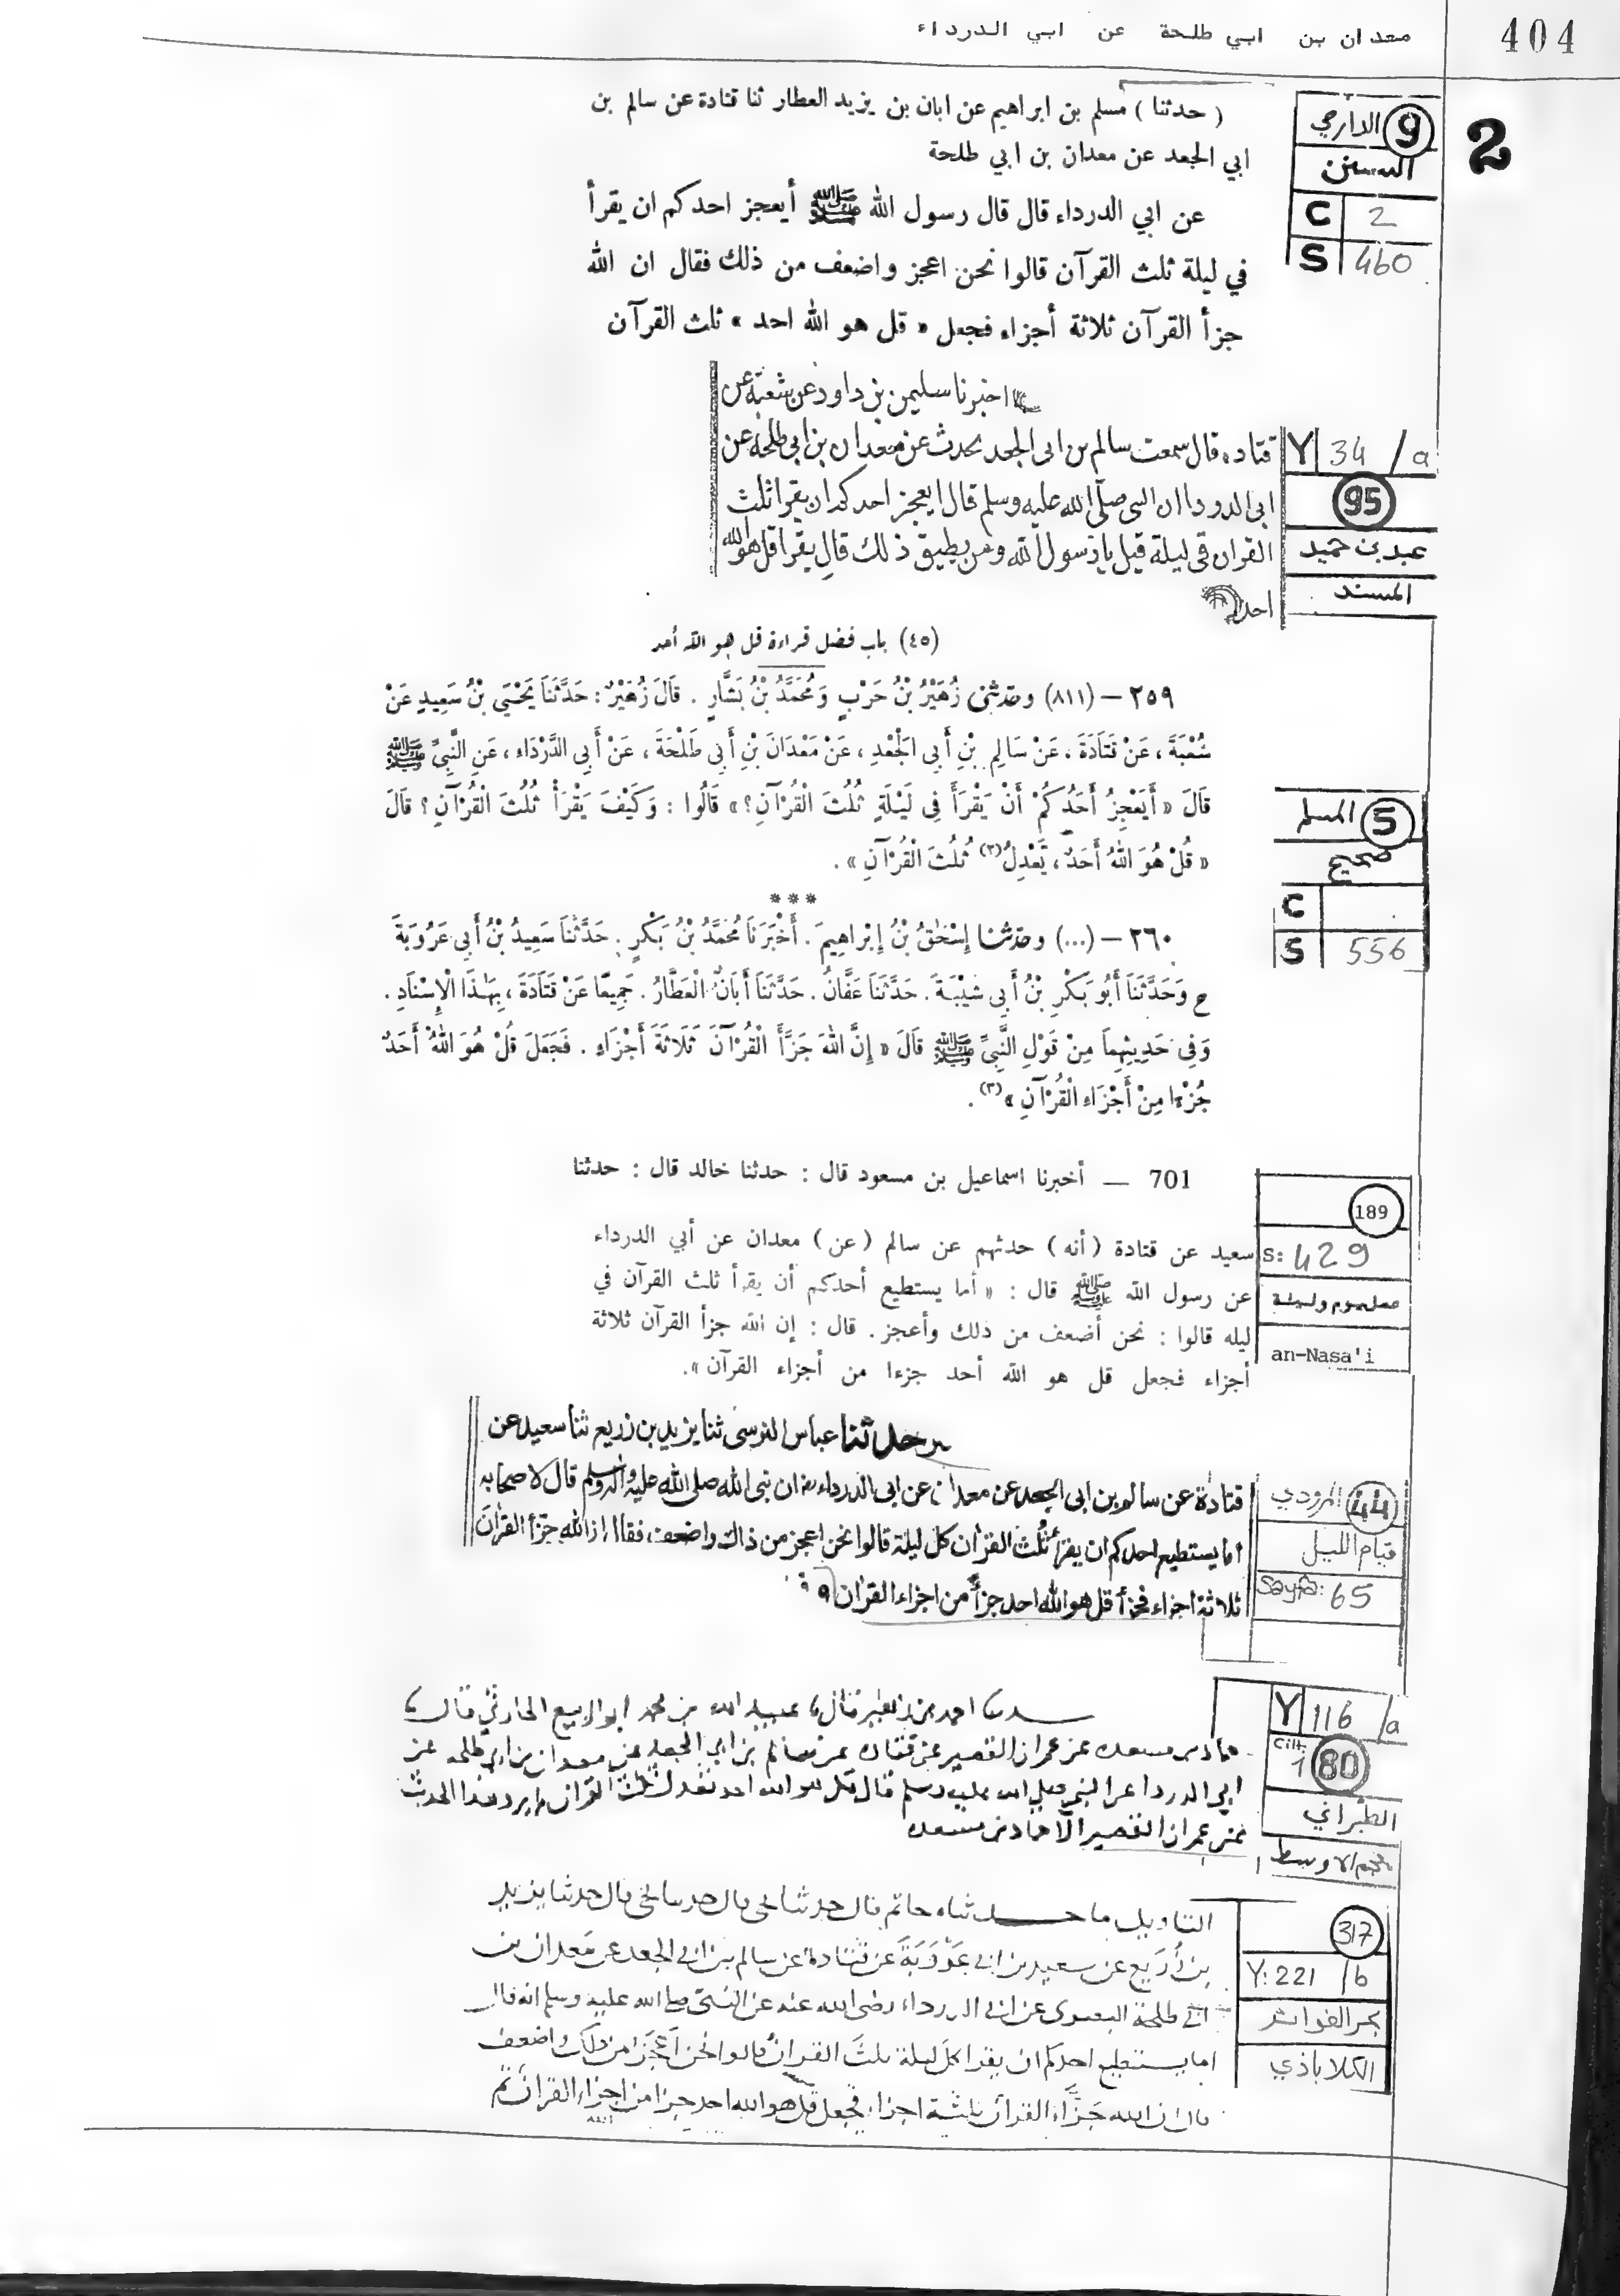 404
معدان بن ابي طلحة عن ابي الدرداء
2
9 الدارمي
السنن
C 2
S 460
( حدثنا ) مسلم بن ابراهيم عن ابان بن يزيد العطار ثنا قتادة عن سالم بن
ابي الجعد عن معدان بن ابي طلحة
عن ابي الدرداء قال قال رسول الله ﷺ أيعجز احدكم ان يقرأ
في ليلة ثلث القرآن قالوا نحن اعجز واضعف من ذلك فقال ان الله
جزأ القرآن ثلاثة أجزاء فجعل « قل هو الله احد » ثلث القرآن
Y 34 / a
95
عبد بن حميد
المسند
اخبرنا سليمن بن داود عن شعبة عن
قتاده قال سمعت سالم بن ابى الجعد يحدث عن معدان بن ابى طلحة عن
ابى الدرداا ان النبى صلى الله عليه وسلم قال ايعجز احدكم ان يقرا ثلث
القران فى ليلة قيل يا رسول الله ومن يطيق ذلك قال يقرا قل هو الله
احد
(٤٥) باب فضل قراءة قل هو الله أحد
5 المسلم
صحيح
C
S 556
٢٥٩ – (٨١١) وحدثنى زُهَيْرُ بْنُ حَرْبٍ وَمُحَمَّدُ بْنُ بَشَّارٍ . قَالَ زُهَيْرٌ : حَدَّثَنَا يَحْيَى بْنُ سَعِيدٍ عَنْ
شُعْبَةَ ، عَنْ قَتَادَةَ ، عَنْ سَالِمِ بْنِ أَبِي الْجَعْدِ ، عَنْ مَعْدَانَ بْنِ أَبِي طَلْحَةَ ، عَنْ أَبِي الدَّرْدَاءِ ، عَنِ النَّبِيِّ ﷺ
قَالَ « أَيَعْجِزُ أَحَدُكُمْ أَنْ يَقْرَأَ فِي لَيْلَةٍ ثُلُثَ الْقُرْآنِ؟ » قَالُوا : وَكَيْفَ يَقْرَأُ ثُلُثَ الْقُرْآنِ ؟ قَالَ
« قُلْ هُوَ اللهُ أَحَدٌ ، تَعْدِلُ(٢) ثُلُثَ الْقُرْآنِ » .
***
٢٦٠ – (...) وحدثنا إِسْحَٰقُ بْنُ إِبْرَاهِيمَ . أَخْبَرَنَا مُحَمَّدُ بْنُ بَكْرٍ . حَدَّثَنَا سَعِيدُ بْنُ أَبِي عَرُوبَةَ
ح وَحَدَّثَنَا أَبُو بَكْرِ بْنُ أَبِي شَيْبَةَ . حَدَّثَنَا عَفَّانُ . حَدَّثَنَا أَبَانٌ الْعَطَّارُ . جَمِيعًا عَنْ قَتَادَةَ ، بِهَٰذَا الْإِسْنَادِ .
وَفِي حَدِيثِهِمَا مِنْ قَوْلِ النَّبِيِّ ﷺ قَالَ « إِنَّ اللهَ جَزَّأَ الْقُرْآنَ ثَلَاثَةَ أَجْزَاءٍ . فَجَعَلَ قُلْ هُوَ اللهُ أَحَدٌ
جُزْءًا مِنْ أَجْزَاءِ الْقُرْآنِ »(٣) .
189
S: 429
عمل يوم وليلة
an-Nasa'i
701 — أخبرنا اسماعيل بن مسعود قال : حدثنا خالد قال : حدثنا
سعيد عن قتادة (أنه) حدثهم عن سالم (عن) معدان عن أبي الدرداء
عن رسول الله ﷺ قال : « أما يستطيع أحدكم أن يقرأ ثلث القرآن في
ليله قالوا : نحن أضعف من ذلك وأعجز . قال : إن الله جزأ القرآن ثلاثة
أجزاء فجعل قل هو الله أحد جزءا من أجزاء القرآن ».
44 المروذي
قيام الليل
Sayfa: 65
حدثنا عباس النرسى ثنا يزيد بن زريع ثنا سعيد عن
قتادة عن سالم بن ابى الجعد عن معدان عن ابى الدرداء ان نبى الله صلى الله عليه واله وسلم قال لاصحابه
اما يستطيع احدكم ان يقرأ ثلث القران كل ليلة قالوا نحن اعجز من ذاك واضعف فقال ان الله جزأ القران
ثلاثة اجزاء فجزأ قل هو الله احد جزأ من اجزاء القران ٩
Y 116 / a
cilt: 1 80
الطبراني
معجم الاوسط
احمد بن زهير قال عبيد الله بن محمد ابو الربيع الحارثي قال
حماد بن مسعده عن عمران القصير عن قتاده عن سالم بن ابي الجعد عن معدان بن ابي طلحه عن
ابي الدرداء عن النبي صلى الله عليه وسلم قال قل هو الله احد تعدل ثلث القران لم يرو هذا الحديث
عن عمران القصير الا حماد بن مسعده
317
Y: 221 / b
بحر الفوائد
الكلاباذي
التاويل ما حدثناه حاتم قال حدثنا يحيى قال حدثنا يحيى قال حدثنا يزيد
بن زُرَيع عن سعيد بن ابى عَرُوبَة عن قتادة عن سالم بن ابى الجعد عن مَعدان بن
ابى طلحة اليعمرى عن ابى الدرداء رضى الله عنه عن النبى صلى الله عليه وسلم انه قال
اما يستطيع احدكم ان يقرا كل ليلة ثلث القران قالوا نحن اَعجَزُ من ذلك واضعف
قال ان الله جَزَّاَء القرآن ثلثة اجزاء فجعل قل هو الله احد جزا من اجزاء القرآن ثم
الله